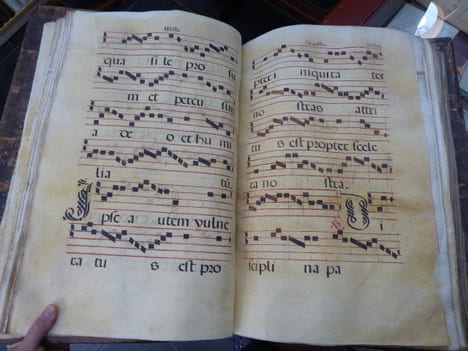 qua si le pro su
m et percu ssum
a de o et hu mi
lia tū.
Ipse a utem vulne
ra tu s est pro
pter i niquita tes
no stras attri
tu s est propter scele
ra no stra. Di
scipli na pa